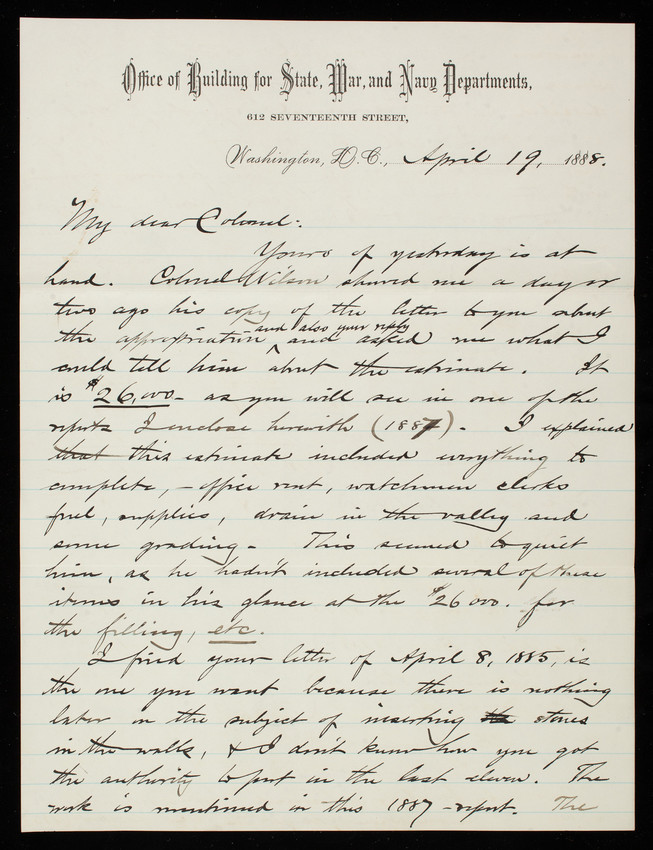 Office of Building for State, War, and Navy Departments,
612 SEVENTEENTH STREET,
Washington, D.C., April 19, 1888.
My dear Colonel:
Yours of yesterday is at
hand. Colonel Wilson showed me a day or
two ago his copy of the letter to you about
and also your reply
the appropriation and asked me what I
could tell him about the estimate. It
is $26,000 - as you will see in one of the
reports I enclose herewith (1887). I explained
that this estimate included everything to
complete, - office rent, watchmen clerks
fuel, supplies, drain in the valley and
some grading - This seemed to quiet
him, as he hadn't included several of these
items in his glance at the $26 000. for
the filling, etc.
I find your letter of April 8, 1885, is
the one you want because there is nothing
later on the subject of inserting the stones
in the walls, & I don't know how you got
the authority to put in the last eleven. The
work is mentioned in this 1887 - report. The